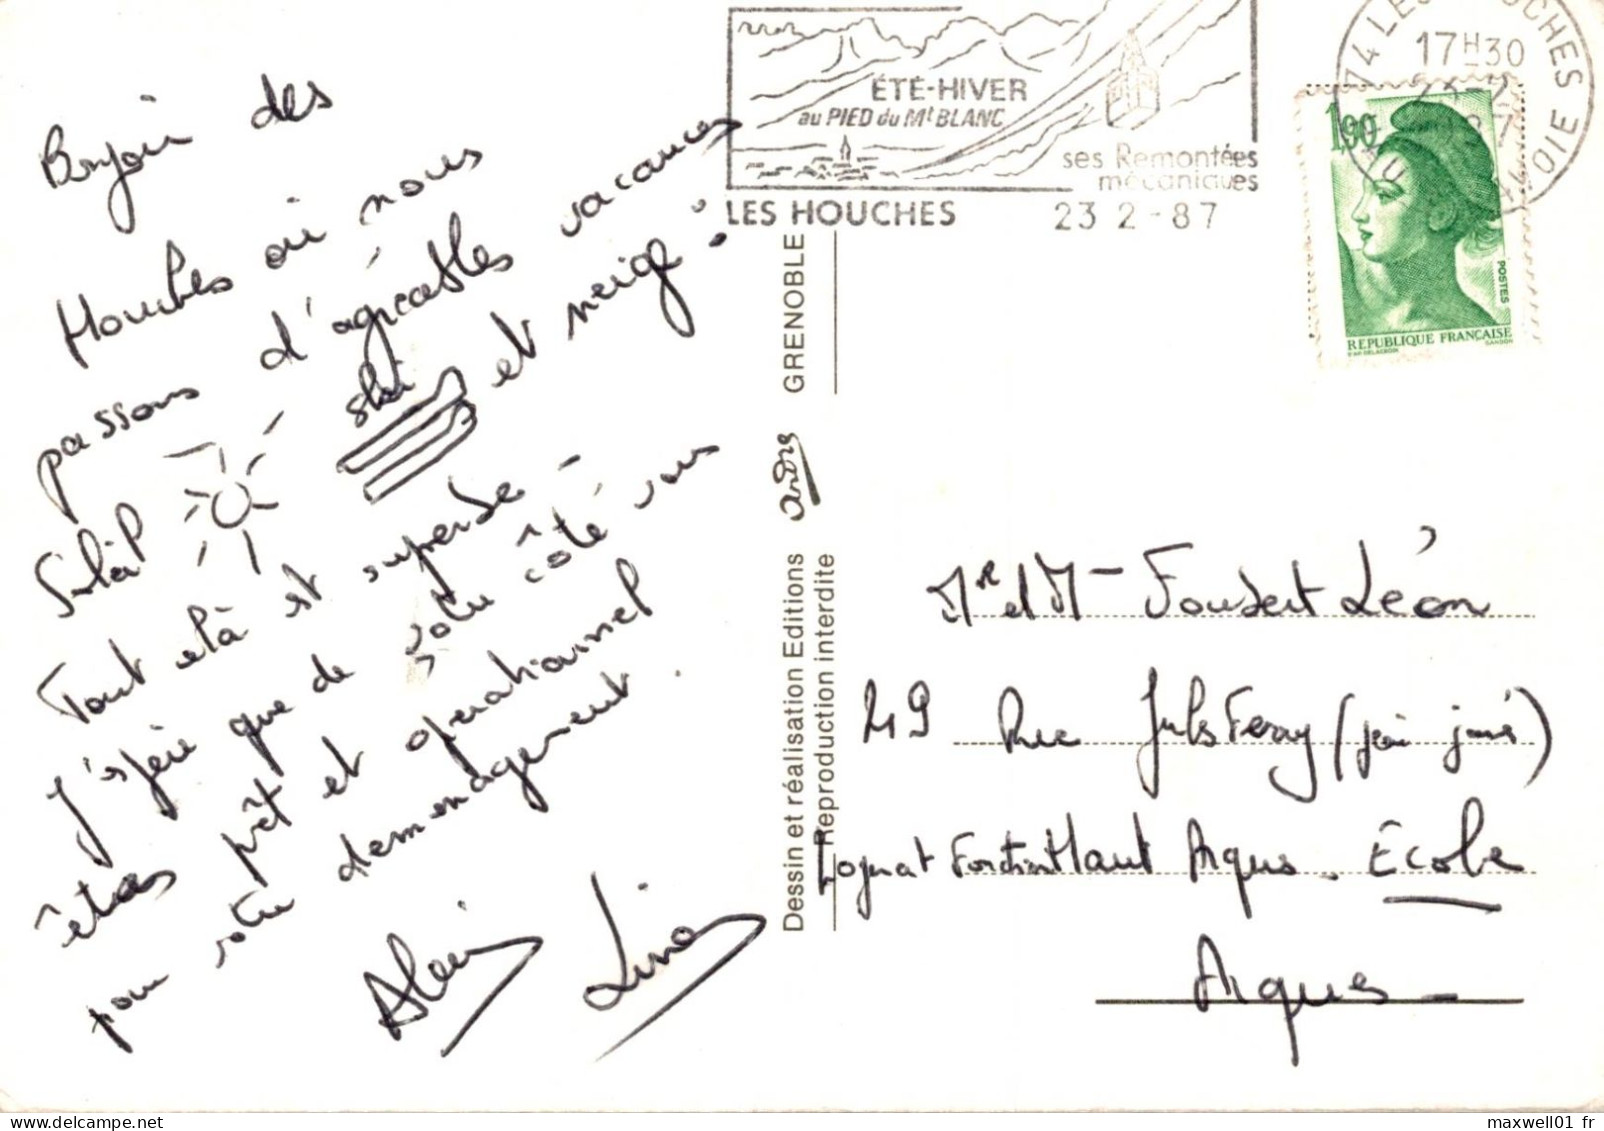 Bonjour des
Houches où nous
passons d'agréables vacances
Soleil ski et neige !
Tout celà est superbe -
J'espère que de votre côté vous
êtes prêt et opérationnel
pour votre demenagement.
Alain Lina
ÉTÉ-HIVER
au PIED du Mt BLANC
ses Remontées
mécaniques
LES HOUCHES 23 2 - 87
74 LES HOUCHES
17H30
23-2
1,90
POSTES
REPUBLIQUE FRANÇAISE
GANDON
Dessin et réalisation Editions André GRENOBLE
Reproduction interdite
Mr et M - Foubert Léon
49 Rue Jules Ferry (
Arques - École
Arques -
maxwell01 fr